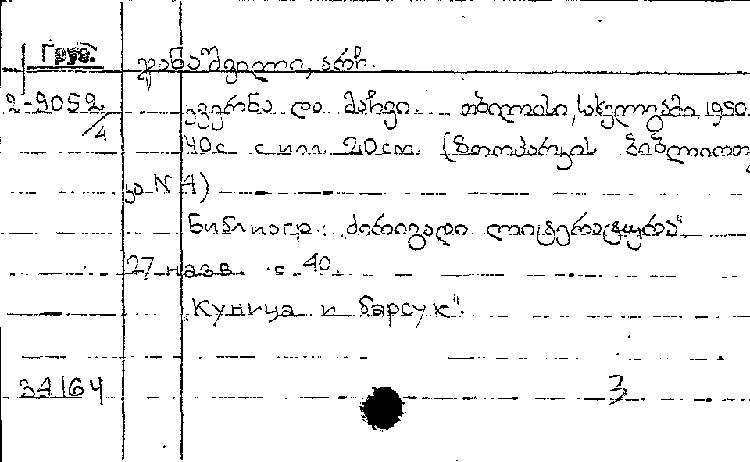 Груз.
ჯანაშვილი, არჩ.
2-9052/4 კვერნა და მაჩვი. თბილისი, სახელგამი 1950.
40с с илл 20см. (ზოოპარკის ბიბლიოთე
კა N 4)
Библиогр: „ძირითადი ლიტერატურა"
27 назв. с 40.
„Куница и барсук".
34164 3